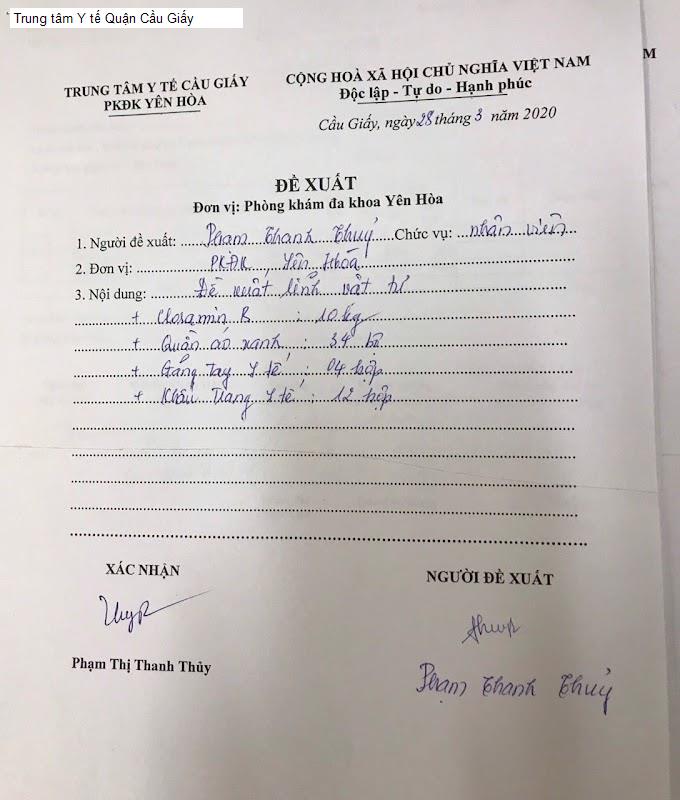 Trung tâm Y tế Quận Cầu Giấy
TRUNG TÂM Y TẾ CẦU GIẤY
PKĐK YÊN HÒA
CỘNG HOÀ XÃ HỘI CHỦ NGHĨA VIỆT NAM
Độc lập - Tự do - Hạnh phúc
M
Cầu Giấy, ngày 28 tháng 3 năm 2020
ĐỀ XUẤT
Đơn vị: Phòng khám đa khoa Yên Hòa
1. Người đề xuất: Phạm Thanh Thuỷ Chức vụ: nhân viên
2. Đơn vị: PKĐK Yên Hòa
3. Nội dung: Đề xuất lĩnh vật tư
+ Cloramin B : 10 kg
+ Quần áo xanh : 34 bộ
+ Găng Tay Y tế : 04 hộp
+ Khẩu Trang Y tế : 12 hộp
XÁC NHẬN
NGƯỜI ĐỀ XUẤT
Phạm Thị Thanh Thủy
Phạm Thanh Thuỷ